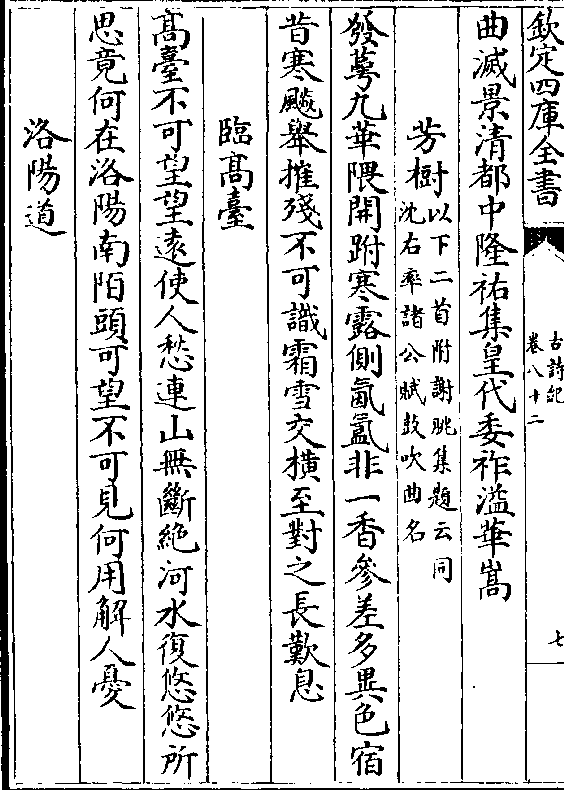 欽定四庫全書
古詩紀
卷八十二
七
曲滅景清都中隆祐集皇代委祚溢華嵩
芳樹以下二首附謝朓集題云同
沈右率諸公賦鼓吹曲名
發萼九華隈開跗寒露側氤氳非一香參差多異色宿
昔寒飈舉摧殘不可識霜雪交橫至對之長歎息
臨髙臺
髙臺不可望望遠使人愁連山無斷絶河水復悠悠所
思竟何在洛陽南陌頭可望不可見何用解人憂
洛陽道